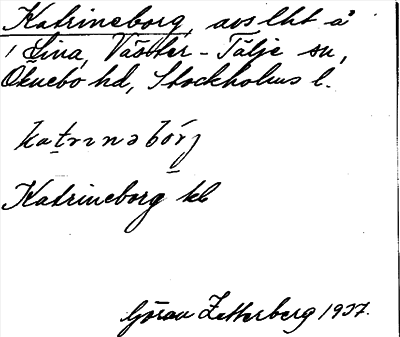 Katrineborg, avs lht å
1 Lina, Väster-Tälje sn,
Öknebo hd, Stockholms l.
katrinəbórj
Katrineborg kb
Göran Zetterberg 1937.